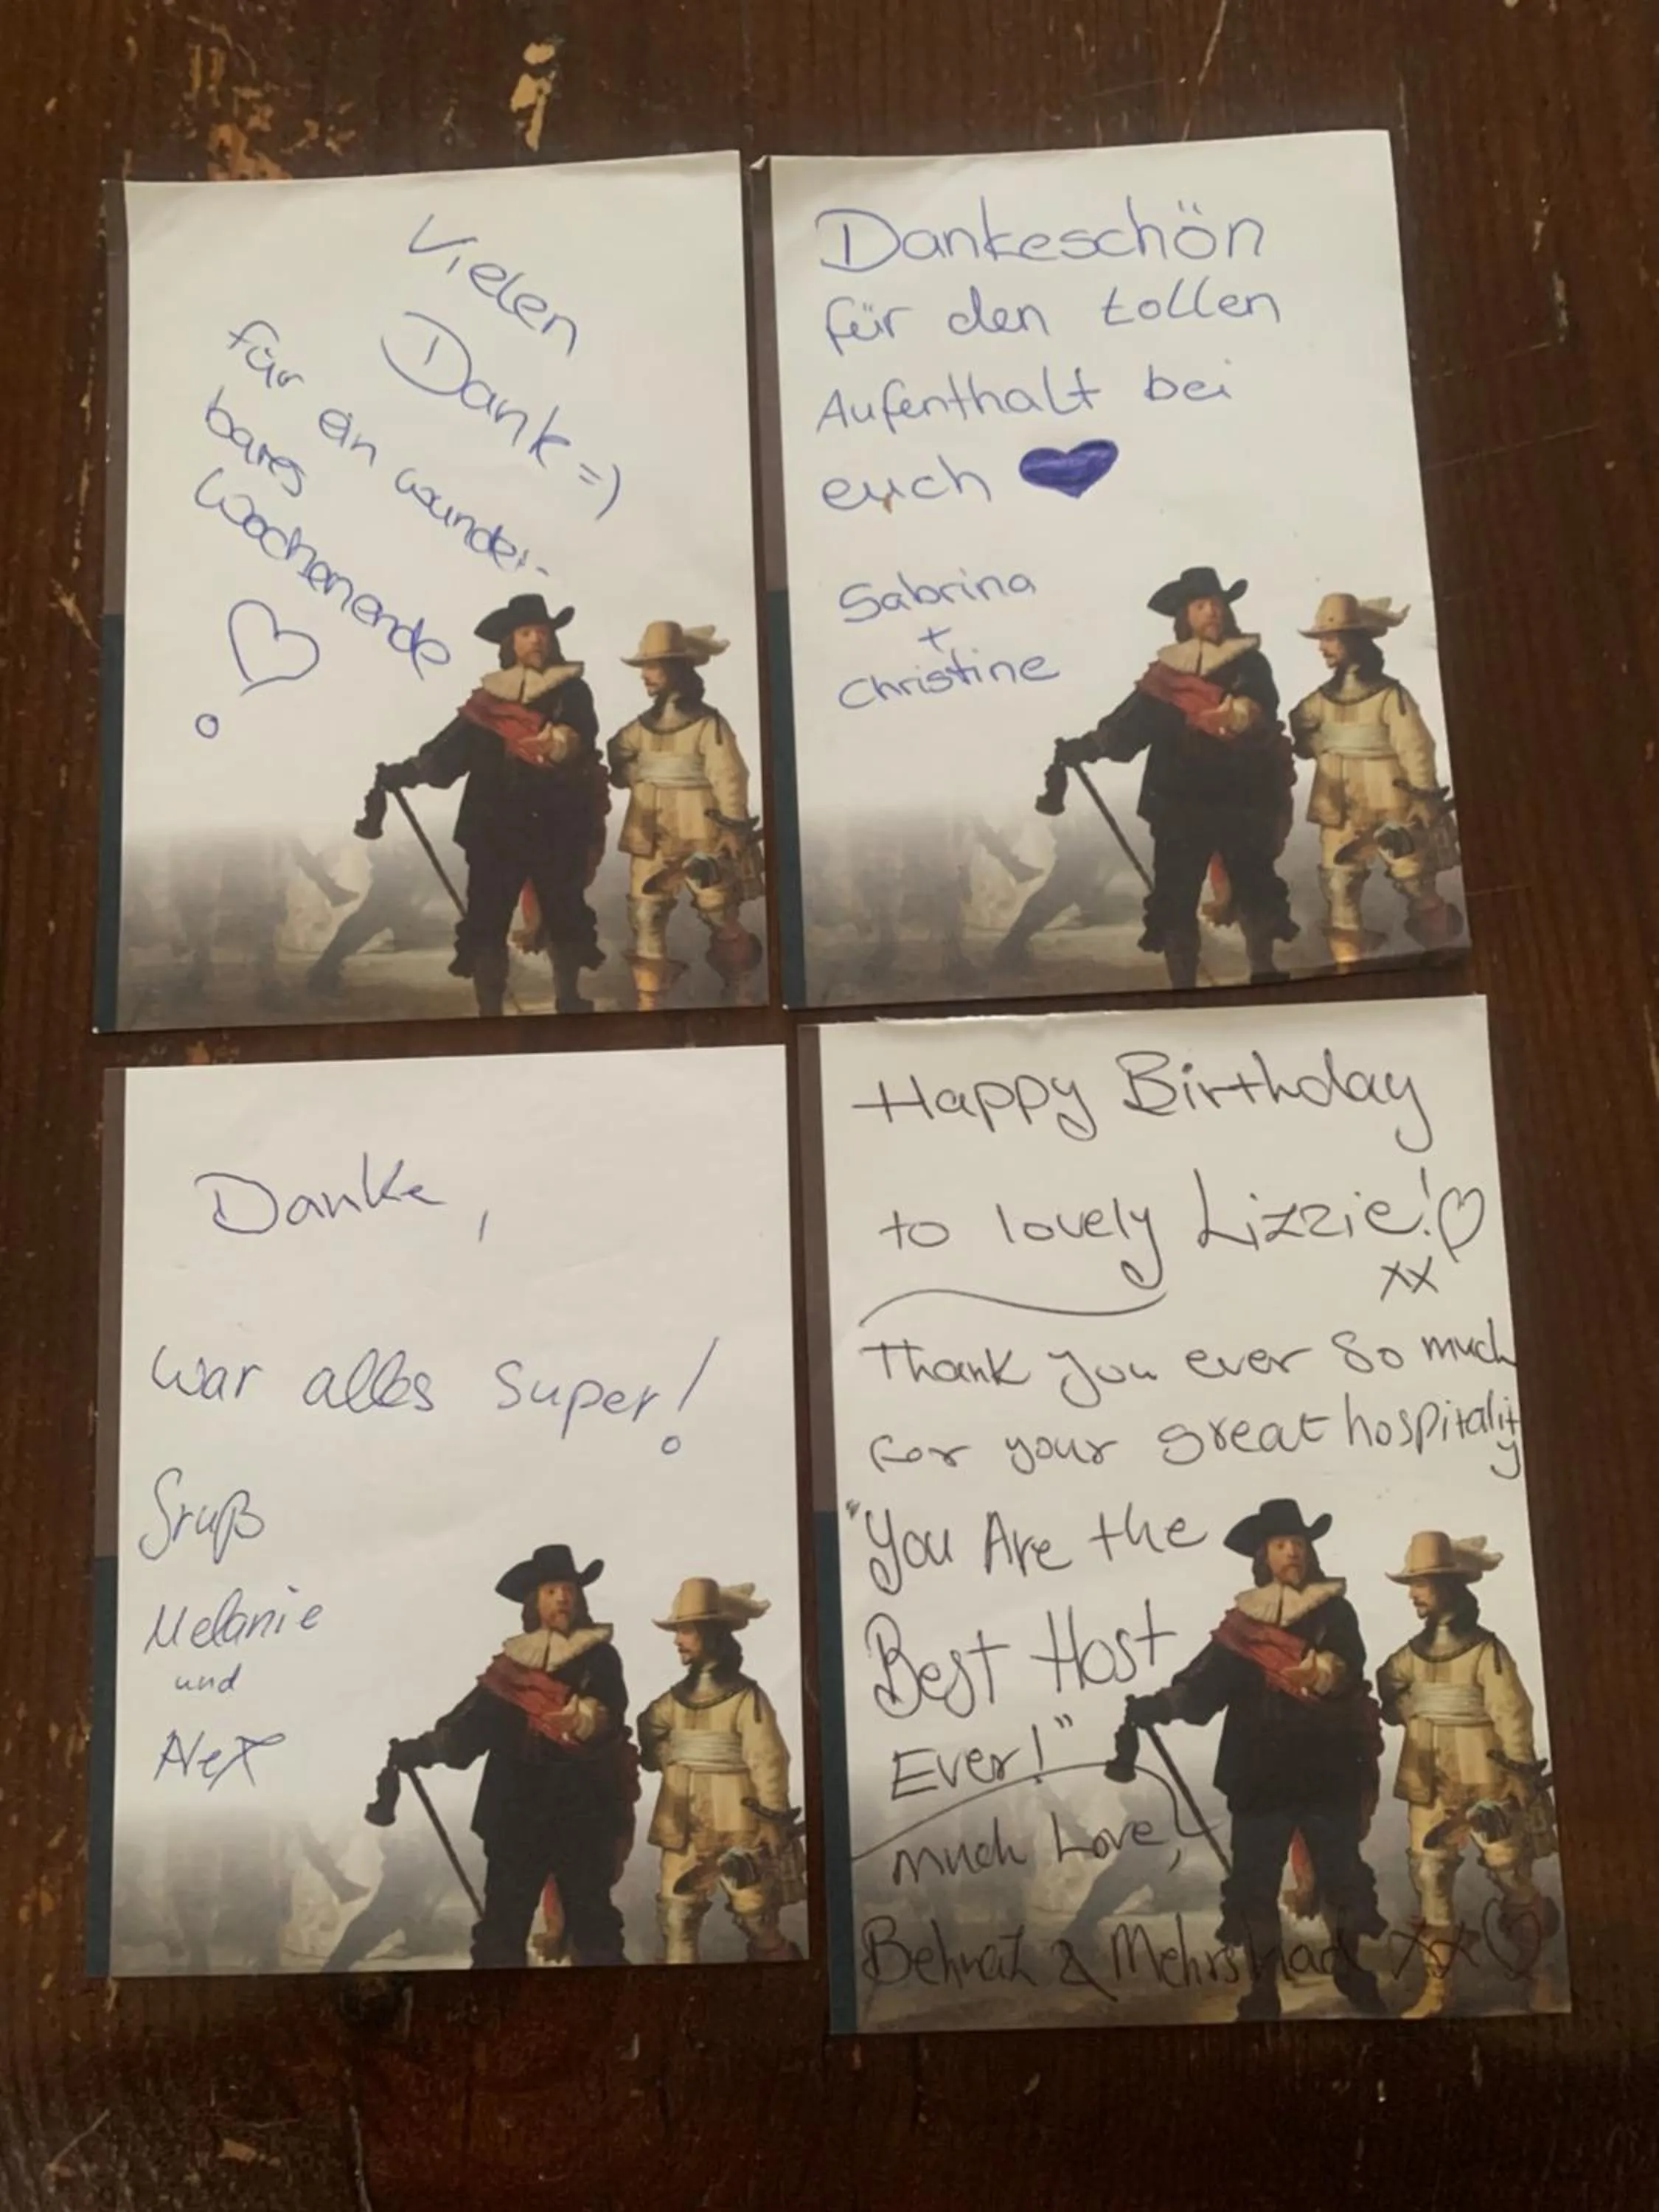 Vielen
Dank =)
für ein wunder-
bares
Wochenende
Dankeschön
für den tollen
Aufenthalt bei
euch
Sabrina
+
Christine
Danke,
war alles super!
Gruß
Melanie
und
Alex
Happy Birthday
to lovely Lizzie!
xx
Thank you ever so much
for your great hospitality
"You Are the
Best Host
Ever!"
much Love,
Behnaz & Mehrshad xx